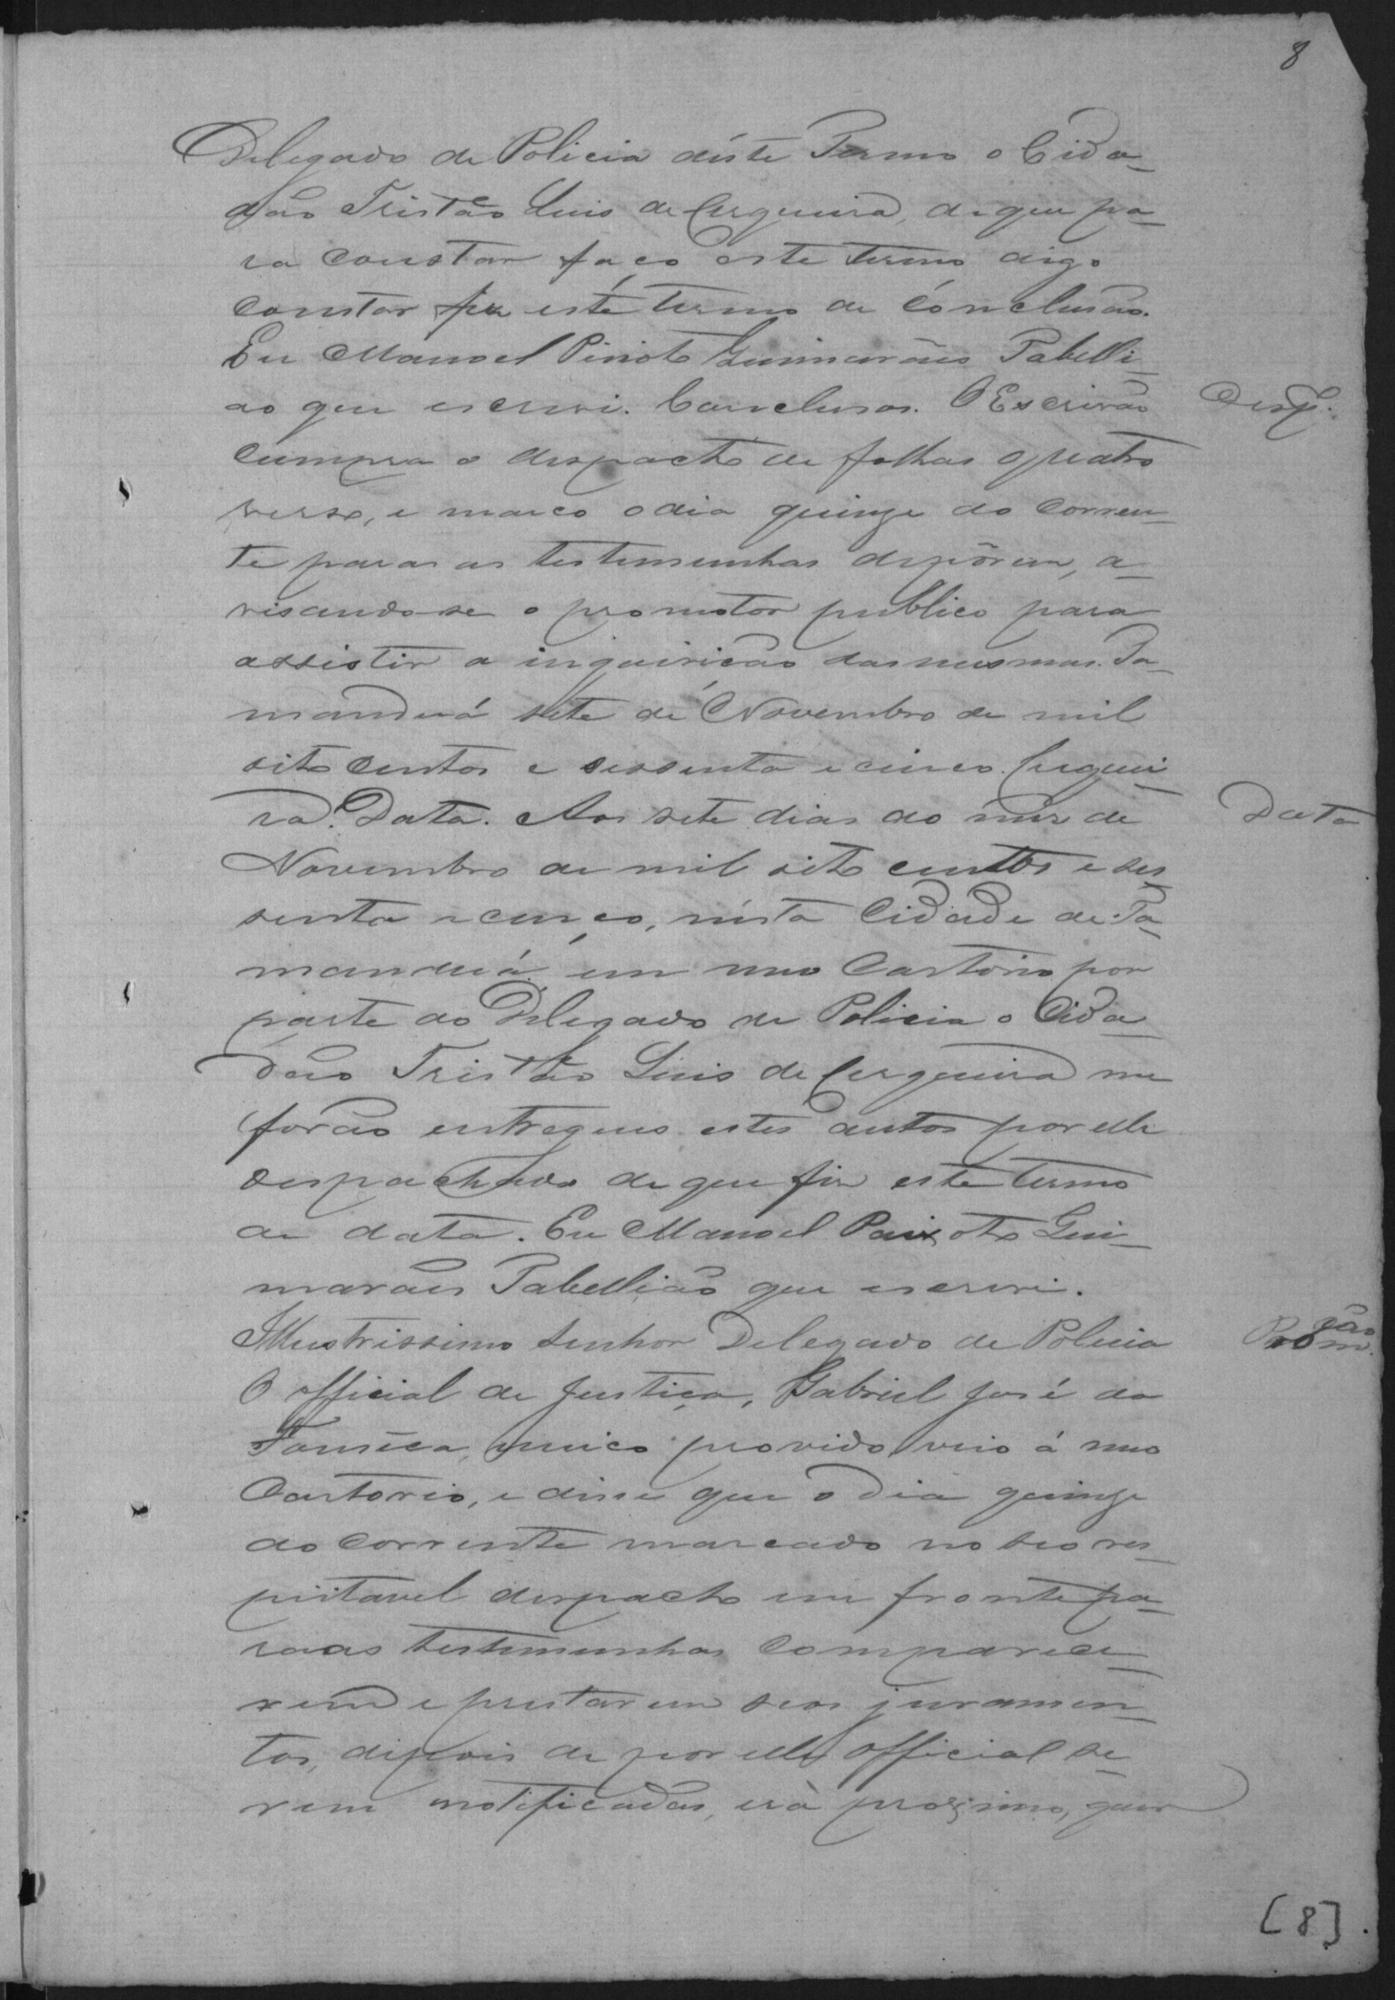 8
Delegado de Policia dêste Termo o Cida-
dão Tristão Luis de Cerqueira, de que pa-
ra constar faço este termo digo
constar fiz este termo de conclusão.
Eu Manoel Peixoto Guimarães Tabelli-
ao que escrevi. Conclusos. O Escrivão
Desp.
cumpra o despacho de folhas quatro
verso, e marco o dia quinze do corren-
te para as testemunhas depôrem, a-
visando-se o promotor publico para
assistir a inquirição das mesmas. Ta-
manduá sete de Novembro de mil
oito centos e sessenta e cinco. Cerquei-
ra. Data. Aos sete dias do mez de
Data
Novembro de mil oito centos e ses
senta e cinco, nésta Cidade de Ta-
manduá em meo Cartorio por
parte do Delegado de Policia o Cida-
dão Tristão Luis de Cerqueira me
forão entregues estes autos por elle
despachado de que fiz este termo
de data. Eu Manoel Peixoto Gui-
marães Tabellião que escrevi.
Illustrissimo Senhor Delegado de Policia
Promção
O official de Justiça, Gabriel José da
Fonseca, unico provido veio á meo
Cartorio, e disse que o dia quinze
do corrente marcado no seo res-
peitavel despacho em fronte pa-
ra as testemunhas comparece-
rem e prestarem seos juramen-
tos, depois de por elle official se-
rem notificadas, erà proximo, quer
[8]